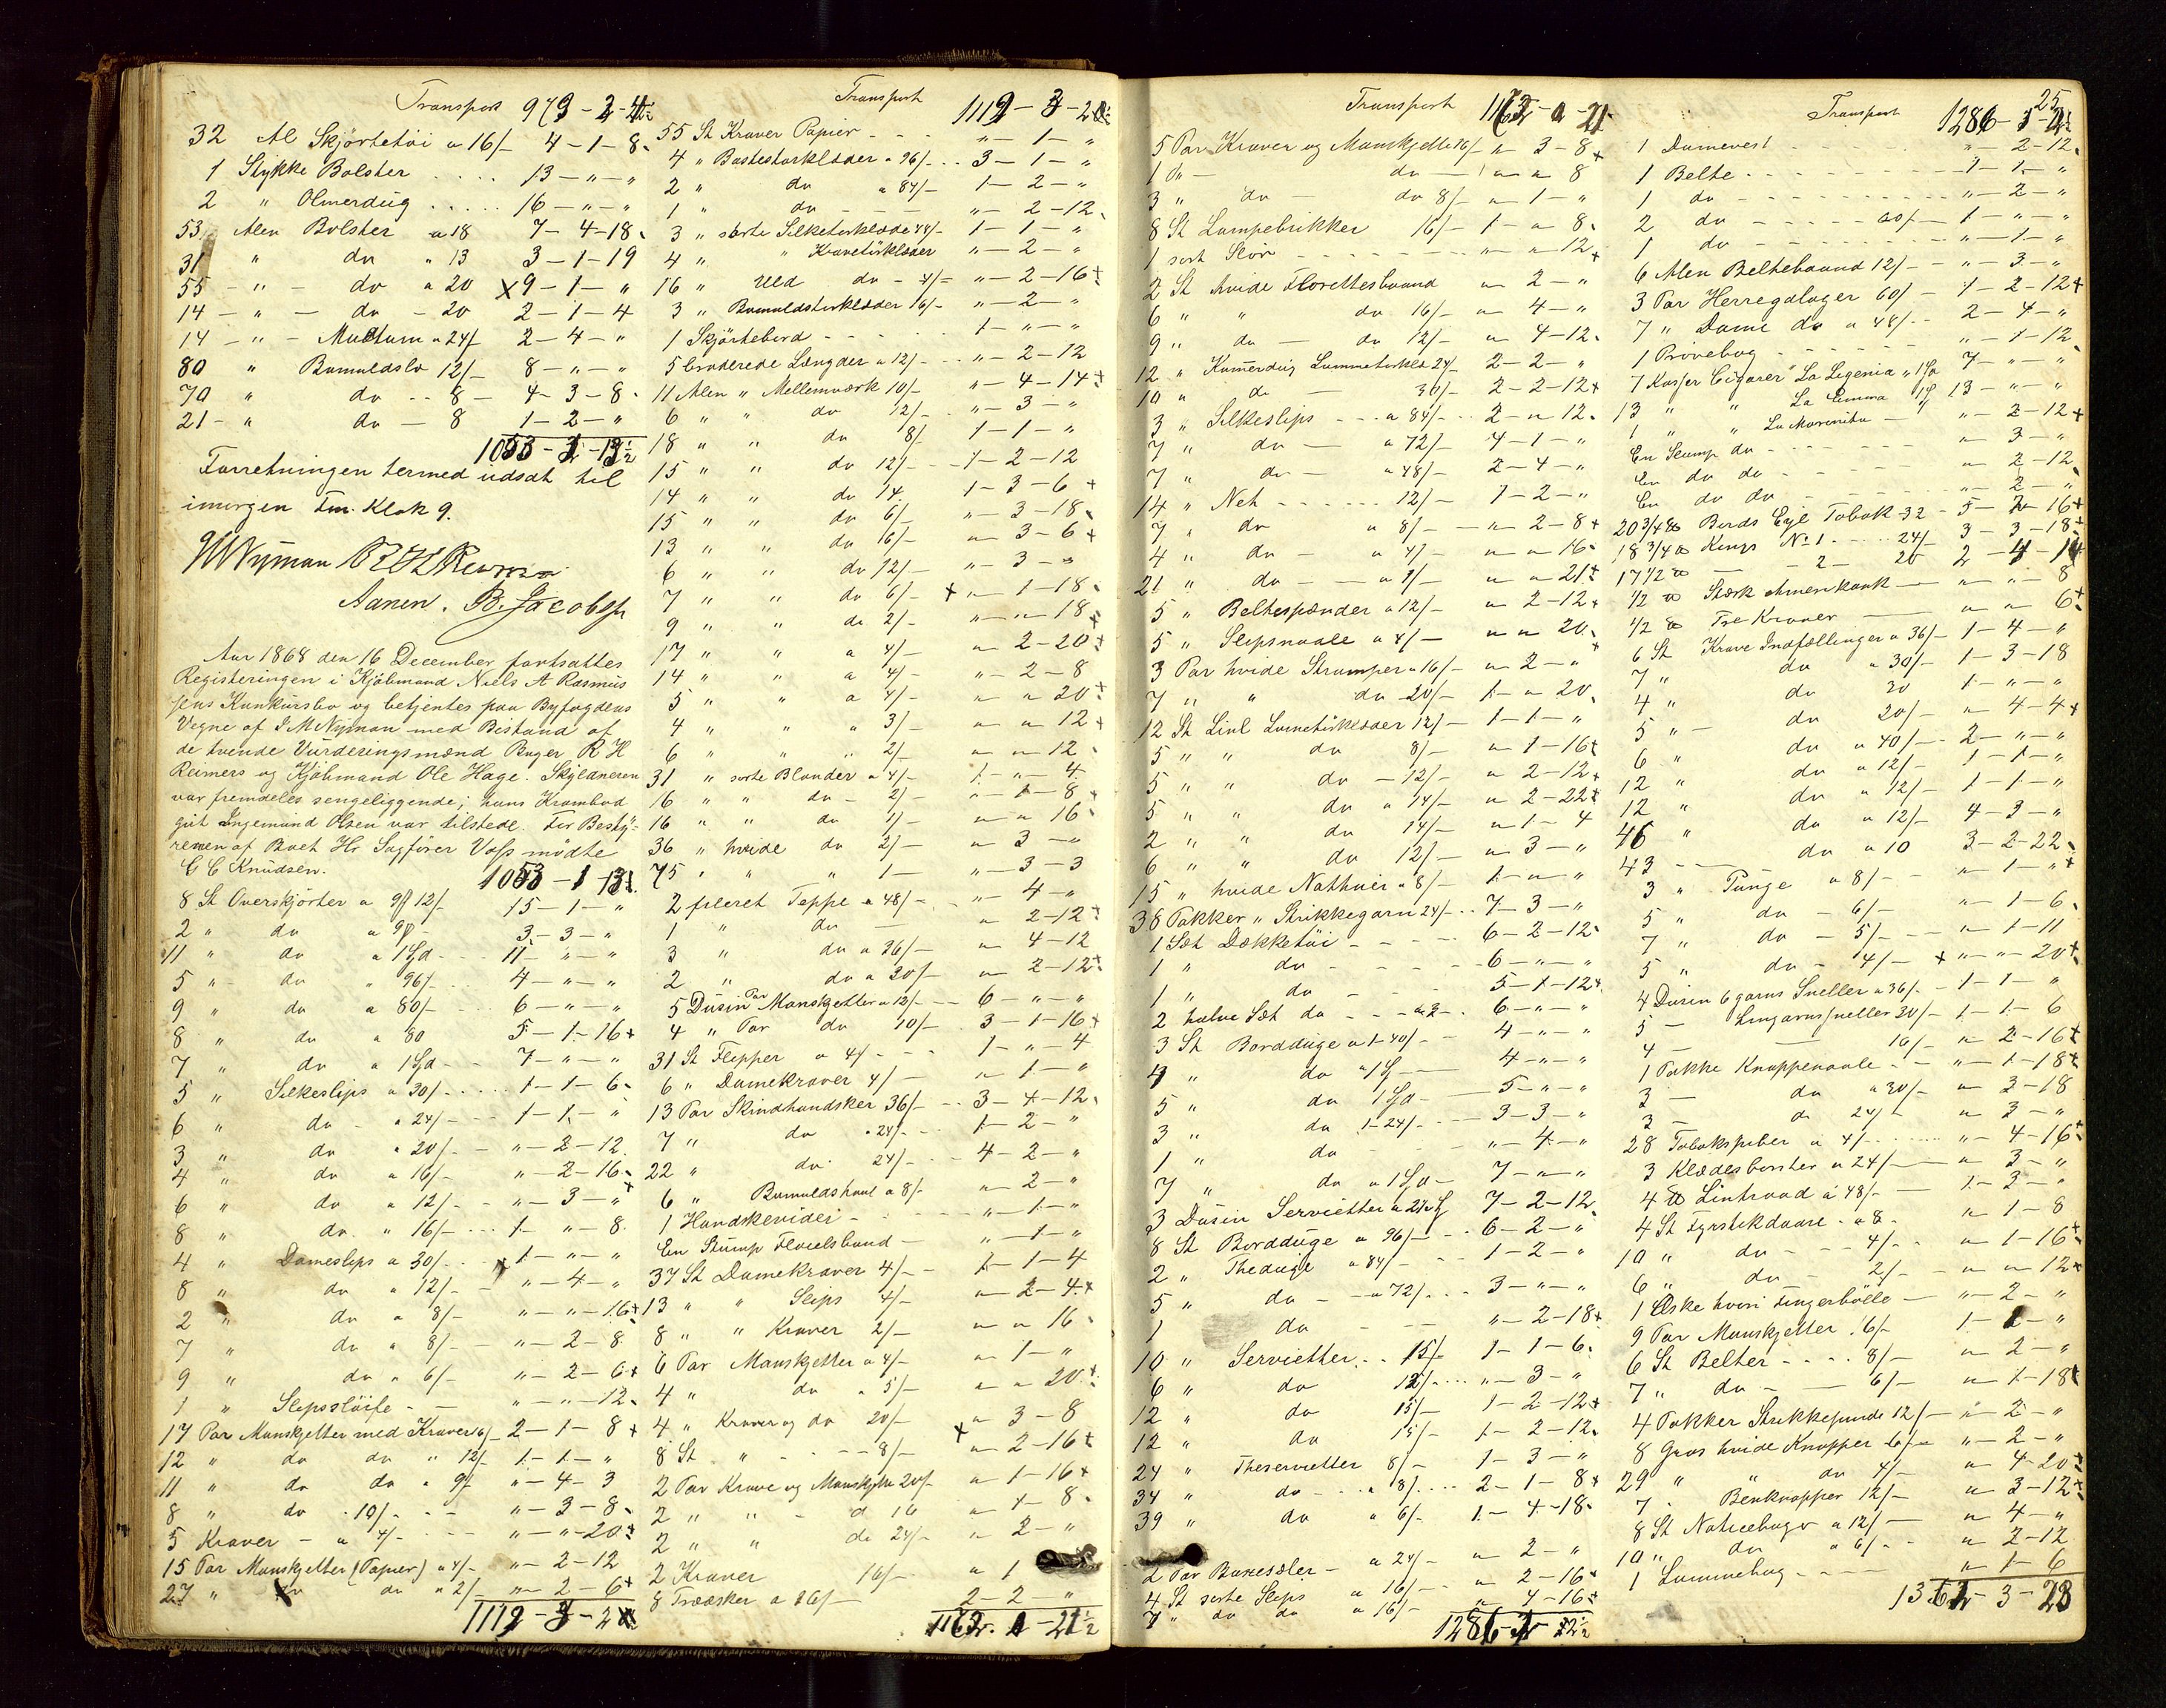 Transport 973-2-4½
32 Al Skjørtetøi a 16/- 4-1-8
1 Stykke Bolster .... 13-"-"
2 " Olmerdug ..... 16-"-"
53 Alen Bolster a 18 7-4-18
31 " do " 13 3-1-19
55 - " - do a 20 x9-1-"
14 - " - do - 20 2-1-4
14 - " - a 24/- 2-4-"
80 " Bomuldslo 12/- 8-"-"
70 " do -- 8 - 4-3-8
21 - " do - 8 1-2-"
Forretningen hermed udsat til
imorgen Fm. Klok 9.
Aanen. B. Jacobsen
Aar 1868 den 16 December fortsattes
Registeringen i Kjøbmand Niels A Rasmus
sens Konkursbo og betjentes paa Byfogdens
Vegne af I M Nyman med Bistand af
de tvende Vurderingsmænd Bager R H
Reimers og Kjøbmand Ole Hage. Skyldneren
var fremdeles sengeliggende; hans Krambod
gut Ingemund Olsen var tilstede. For Besty-
relsen af Boet Hr Sagfører Voss mødte
C C Knudsen.
8 St Overskjorter a 12/- 15-1-"
2 " do 3-3-"
11 " do a 1 Spd 11-"-"
5 " do " 96/- 4-"-"
9 " do a 80/- 6-"-"
8 " do a 80 5-1-16
7 " do a 1 Spd - 7-"-"
5 " Silkeslips a 30/- 1-1-6
6 " do " 24/- 1-1-"
3 " do " 20/- "-2-12
4 " do " 16/- "-2-16
6 " do " 12/- "-3-"
8 " do " 16/- 1-"-8
4 " Dameslips a 30/- 1-"-"
8 " do " 12/- "-4-"
2 " do " 8/- "-"-16
7 " do " 8/- "-2-8
9 " do " 6/- "-2-6
1 " Slipssløife - "-"-12
17 Par Manskjetter med Kraver 16/- 2-1-8
12 " do do " 12/- 1-1-"
11 " do do " 9/- "-4-3
8 " do - 10/- "-3-8
5 Kraver - a 4/- "-"-20
15 Par Manskjetter (Papier) a 4/- "-2-12
27 " do do a 2/- "-2-6
Transport
55 St Kraver Papier - "-1-"
4 " a 96/- 3-1-"
2 " do a 84/- 1-2-"
1 " do "-2-12
3 " sorte Silketørklæde 48/- 1-1-"
4 " " Kravetørklæder "-2-"
16 " Uld do - 4/- "-2-16
3 " Bomuldstørklæder 16/- "-2-"
1 Skjørtebord - 1-"-"
5 broderede Længder a 12/- "-2-12
11 Alen " Mellemværk 10/- "-4-14
6 " " do 12/- "-3-"
18 " " do 8/- 1-1-"
15 " " do 12/- 1-2-12
14 " " do 14 1-3-6
15 " " do 6/- "-3-18
13 " " do 6/- "-3-6
6 " " do 12/- "-3-"
7 " " do 6/- "-1-18
9 " " do 2/- "-"-18
17 " " a 4/- "-2-20
14 " " a 4/- "-2-8
5 " " a 4/- "-"-20
4 " " " 3/- "-"-12
6 " " " 2/- "-"-12
31 " sorte Blonder a 4/- 1-"-4
16 " " do - 2/- "-1-8
16 " " do 1/- "-"-16
36 " hvide do 2/- "-3-"
75 " " " 1- "-3-3
2 fileret Teppe a 48/- "-4-"
1 " do - "-2-12
3 " do a 36/- "-4-12
2 " do a 30/- "-2-12
5 Dusin Par Manskjetter a 12/- 6-"-"
4 " Par do 10/- 3-1-16
31 St Flipper a 4/- 1-"-4
6 " Damekraver 4/- "-1-"
13 Par Skindhandsker 36/- 3-4-12
7 " do " 24/- 1-2-"
22 " do 24/- 4-2-"
6 " a 8/- "-2-"
1 Handskevider - "-1-"
En Stump Fløielsbaand - "-1-"
37 St Damekraver 4/- 1-1-4
13 " " Slips 4/- "-2-4
8 " " Kraver 2/- "-"-16
6 Par Manskjetter a 4/- "-1-"
4 " do " 5/- "-"-20
4 " Kraver og do 20/- "-3-8
8 St " - 8/- "-2-16
2 Par Krave og Manskjetter 20/- "-1-16
2 " " - d 16 "-1-8
2 " " do 24/- "-2-"
2 Kraver 16/- "-1
8 Træsker a 36/- 2-2-"
Transport
5 Par Kraver og Manskjetter 16/- "-3-8
1 " - do - "-"-8
3 " do - do 8/- "-1-"
8 St Lampebrikker 16/- 1-"-8
1 sort Slør - "-"-12
2 St hvide Florettesbaand "-2-"
6 " " do 16/- "-4-"
9 " do - do 12/- "-4-12
12 " Kamerdug Lommetørkl. 24/- 2-2-"
10 " do - 30/- 2-2-12
3 " Silkeslips - a 84/- 2-"-12
7 " do - a 72/- 4-1-"
7 " do - a 48/- 2-4-"
14 " Net - 12/- 1-2-"
7 " do a 8/- "-2-8
4 " do - a 4/- "-"-16
21 " do - a 1/- "-"-21
5 " Beltespænder a 12/- "-2-12
5 " Slipsnaale a 4/- "-"-20
3 Par hvide Strømper a 16/- "-2-"
7 " " do 20/- 1-"-20
12 St Linl Lometørklæder 12/- 1-1-"
5 " " do 8/- "-1-16
5 " " do - 12/- "-2-12
5 " " do a 14/- "-2-22
2 " " do 14/- "-1-4
6 " " do 12/- "-3-"
15 " hvide Nathuer a 8/- 1-"-"
38 Pakker " Strikkegarn 24/- 7-3-"
1 Sæt Dækketøi - 6-2-12
1 " do - 6-"-"
1 " do - 5-1-12
2 halve Sæt do - a 3- 6-"-"
3 St Bordduge a 1-40/- 4-"-"
4 " do " 1 S 4-"-"
5 " do 1 Spd - 5-"-"
3 " do 1-24/- 3-3-"
1 " do - "-4-"
7 " do a 1 Spd - 7-"-"
3 Dusin Servietter 7-2-12
8 St Bordduge a 96/- 6-2-"
2 " Theduge a 84/- 1-2-"
5 " do - a 72/- 3-"-"
1 do - "-2-18
10 " Servietter 15/- 1-1-6
6 " do 12/- "-3-"
12 " do 15/- 1-2-12
12 " do 15/- 1-2-12
24 " Theservietter 8/- 1-3-"
34 " do - a 8/- 2-1-8
39 " do a 6/- 1-4-18
2 Par Buxesæler - a 24/- "-2-"
4 St sorte Slips a 16/- "-2-16
7 " do do a 16/- "-4-16
25
Transport
1 Damevest "-2-12
1 Belte - 1-1-"
1 do - "-2-"
2 do - 60/- 1-"-"
1 do - "-1-"
6 Alen Beltebaand 12/- "-3-"
3 Par Herregaloger 60/- 1-2-12
7 " Dame do a 48/- 2-4-"
1 Prøvebog - "-1-12
7 Kasser Cigarer La Ligenia a 1 Spd 7-"-"
13 " " La Emma 13-"-"
1 " " La Morenita - "-2-12
En Stump do - "-3-"
En do do - "-2-12
En do do - "-2-"
20 3/4 ℔ Birds Eye Tobak 32 -
18 3/4 ℔ Kings No 1 24/- 3-3-18
17 1/2 ℔ - 2 - 20
1/2 ℔ Stærk Amerikansk - "-"-8
1/2 ℔ Tre Kroner "-"-6
6 St Krave Indfællinger a 36/- 1-4-"
7 " do a 30/- 1-3-18
4 " do 30 1-"-"
5 " - do 20/- "-4-4
6 " do a 40/- 2-"-"
12 " do a 12/- 1-1-"
12 " do a 12/- 1-1-"
46 " do a 12/- 4-3-"
43 - do a 10 3-2-22
3 " Punge a 8/- "-1-"
5 " do - 6/- "-1-6
7 " do - 5/- "-1-11
5 " do - 4/- "-"-20
4 Dusin 6 garns Sneller a 36/- 1-1-"
5 - Lingarnssneller 30/- 1-1-6
4 - 16/- "-2-16
1 Pakke Knappenaale - "-1-18
3 - do a 30/- "-3-18
3 - do 24/- "-3-"
28 Tobakspiber a 4/- "-4-16
3 Klædesborster a 24/- "-3-"
4 ℔ Lintraad á 48/- 1-3-"
4 St Fyrstikdaase a 8 "-1-8
10 " do - 4/- "-1-16
6 " do - 2/- "-"-12
1 Æske hvori Fingerbølle - "-2-"
9 Par Manskjetter 16/-
6 St Belter - 8/- "-2-"
7 " do - 6/- "-1-18
4 Pakker Strikkepinde 12/- "-2-"
8 Gros hvide Knapper 6/- "-2-"
29 " " do 4/- "-4-20
7 " Benknapper 12/- "-3-12
8 St Noticebøger a 12/- "-4-"
10 " do a 6/- "-2-12
1 Lommebog - "-1-6